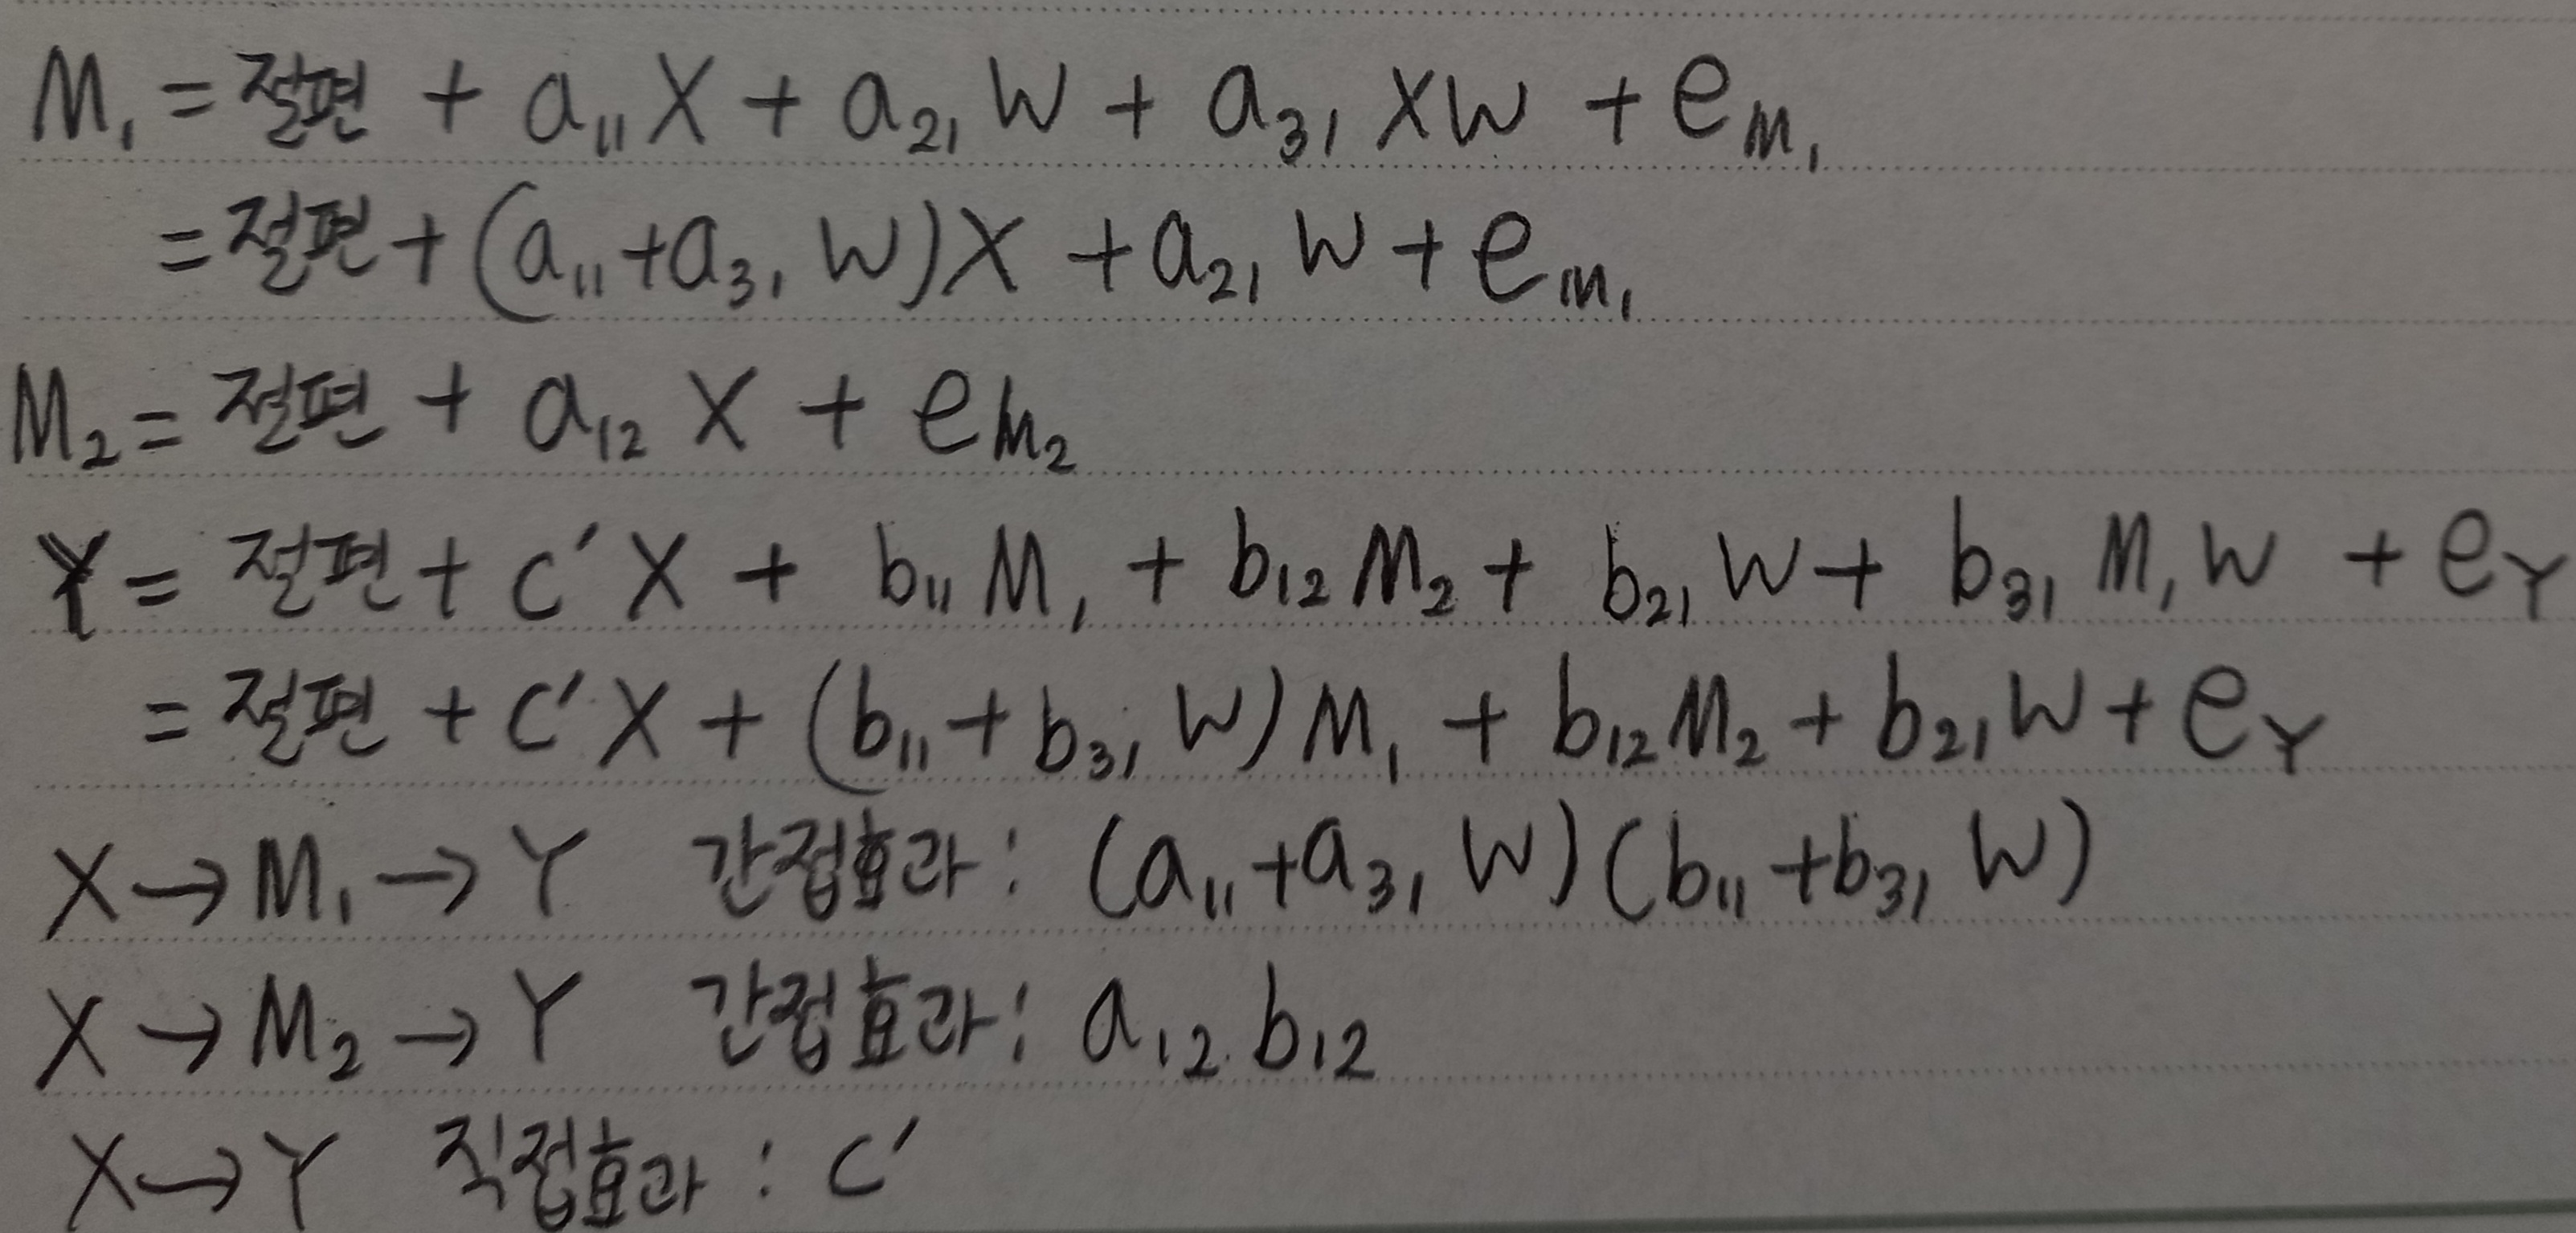 M₁ = 절편 + a₁₁X + a₂₁W + a₃₁XW + e_M₁
= 절편 + (a₁₁+a₃₁W)X + a₂₁W + e_M₁
M₂ = 절편 + a₁₂X + e_M₂
Y = 절편 + c'X + b₁₁M₁ + b₁₂M₂ + b₂₁W + b₃₁M₁W + e_Y
= 절편 + c'X + (b₁₁+b₃₁W)M₁ + b₁₂M₂ + b₂₁W + e_Y
X → M₁ → Y 간접효과: (a₁₁+a₃₁W)(b₁₁+b₃₁W)
X → M₂ → Y 간접효과: a₁₂b₁₂
X → Y 직접효과: c'